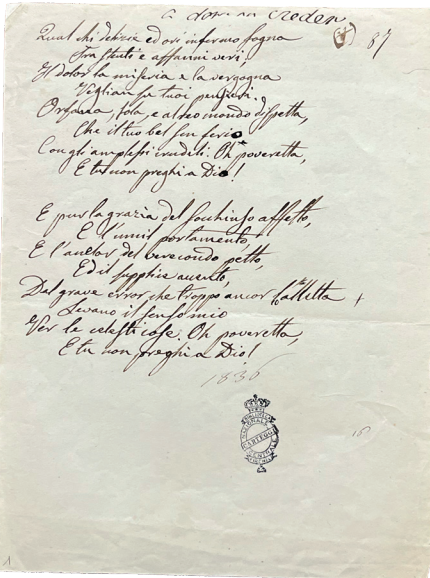 a non credere
87
Qual chi delizie ed ori infermo sogna
Tra stenti e affanni veri.
Il dolor la miseria e la vergogna
Veglian fra tuoi pensieri.
Orfana, sola, e al reo mondo dispetta,
Che il tuo bel sen ferio
Con gli amplessi crudeli. Oh poveretta,
E tu non preghi a Dio!
E pur la grazia del socchiuso affetto,
E l'umil portamento,
E l'anelar del verecondo petto,
Ed il supplice accento,
Dal grave error che troppo ancor t'alletta +
Levano il senso mio
Ver le celesti cose. Oh poveretta,
E tu non preghi a Dio!
1836
16
BIBLIOTECA
NAZIONALE
CARTEGGI
CENTRALE
1